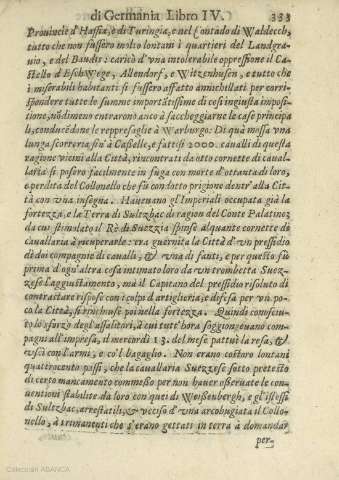 di Germania Libro IV. 333
Prouincie d'Hassia, e di Turingia, e nel Contado di Waldecch,
tutto che non fussero molto lontani i quartieri del Landgra-
uio, e del Baudis: caricò d'vna intolerabile oppressione il Ca-
stello d'EschWege, Allendorf, e Witzenhusen, e tutto che
i miserabili habitanti si fussero affatto annichellati per corri-
spondere tutte le summe importātissime di così ingiusta imposi-
tione, nōdimeno entrarono anco à saccheggiarne le case principa
li, conducēdone le reppresaglie à Warburgo: Di quà mossa vna
lunga scorreria sin' à Casselle, e fattisi 2000. caualli di questa
fattione vicini alla Città, rincontrati da otto cornette di caual-
laria si posero facilmente in fuga con morte d'ottanta di loro,
e perdita del Collonello che fù condotto prigione dentr' alla Cit-
tà con vna insegna. Haueuano gl'Imperiali occupata già la
fortezza, e la Terra di Sultzbac di ragion del Conte Palatino;
da cui stimolato il Rè di Suezzia spinse alquante cornette di
cauallaria à recuperarle: era guernita la Città d'vn presidio
di doi compagnie di caualli, & vna di fanti, e per questo fù
prima d'ogn'altra cosa intimato loro da vn trombetta Suez-
zese l'aggiustamento, ma il Capitano del presidio risoluto di
contrastare rispose con i colpi d'artiglieria; e difesa per vn po-
co la Città, si rinchiuse poi nella fortezza. Quindi conosciu-
to lo sforzo degl'assalitori, à cui tutt'hora soggiongeuano com-
pagni all'impresa, il mercordi 13. del mese pattuì la resa, &
vscì con l'armi, e co'l bagaglio. Non erano costoro lontani
quattrocento passi, che la cauallaria Suezzese sotto pretesto
di certo mancamento commesso per non hauer osseruate le con-
uentioni stabilite da loro con quei di Weißenbergh, e gl'istessi
di Sultzbac, arrestatili, & vcciso d'vna arcobugiata il Collo-
nello, à i rimanenti che s'erano gettati in terra à domandar
per-
Colección ABANCA